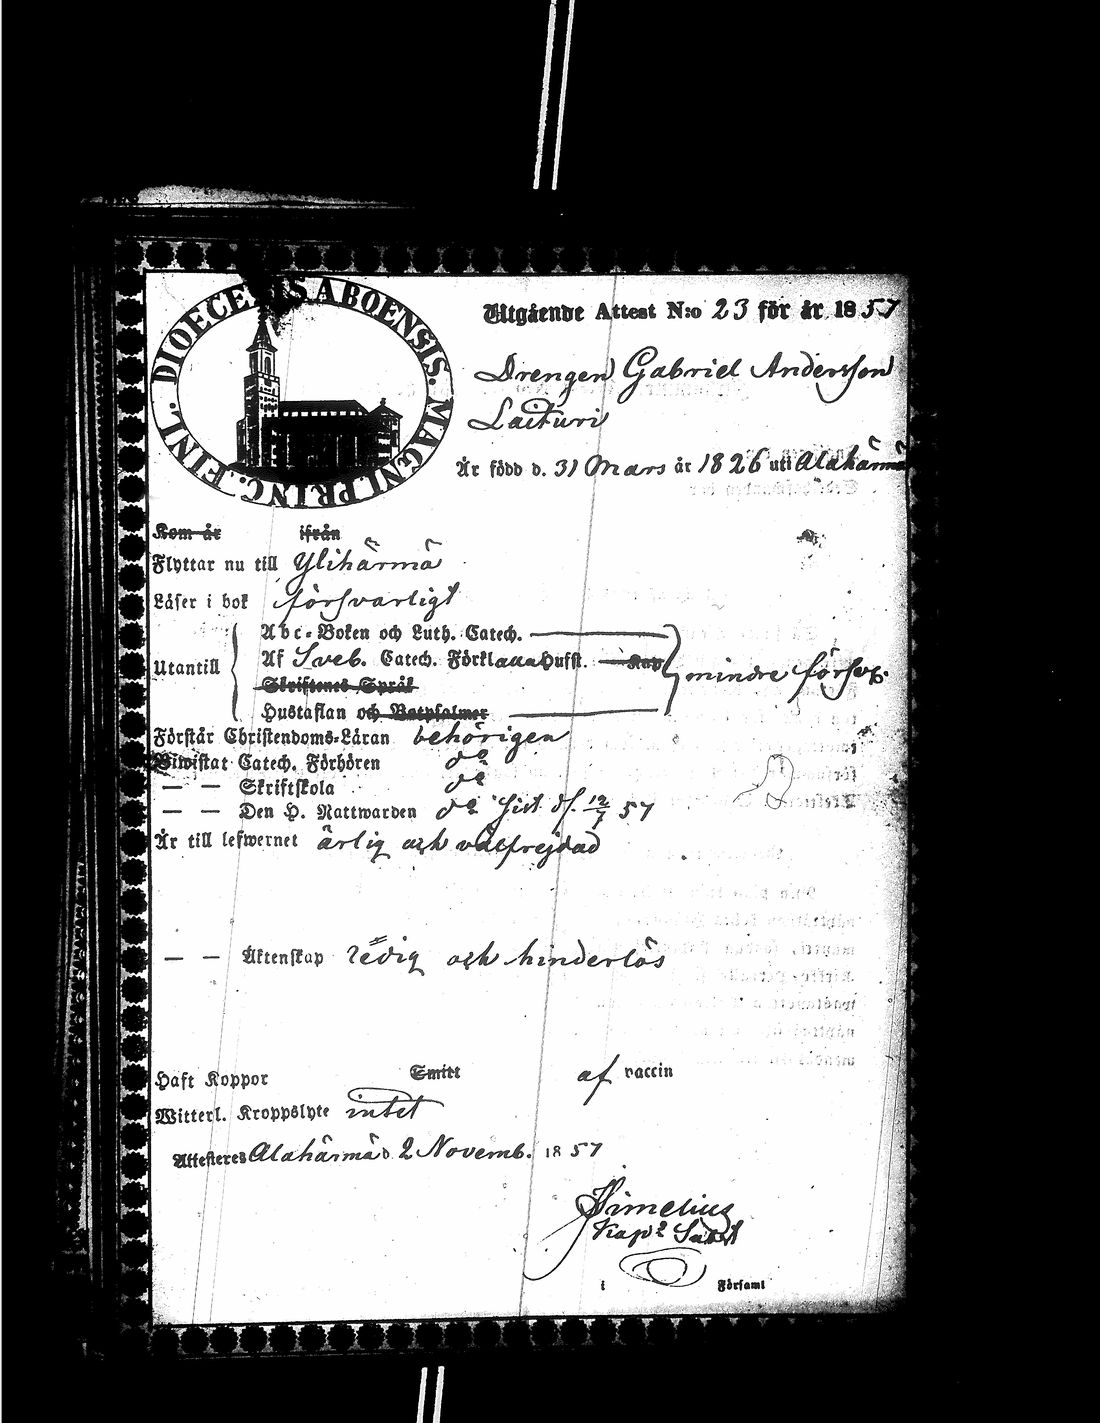 DIOECESIS ABOENSIS. MAGNI PRINC. FINL.
Utgående Attest N:o 23 för år 1857
Drengen Gabriel Andersson
Laituri
Är född d. 31 Mars år 1826 uti Alahärmä
Kom år ifrån
Flyttar nu till Ylihärmä
Läser i bok försvarligt
Utantill
Abc-Boken och Luth. Catech.
Af Sveb. Catech. Förkl Hufst. Kap
Skriftenes Språk
Hustaflan och Botpsalmer
mindre försv.
Förstår Christendoms-Läran behörigen
Biwistat Catech. Förhören do
— — Skriftskola do
— — Den H. Nattwarden do sist d. 12/7 57
Är till lefwernet ärlig och välfrejdad
— — Äktenskap ledig och hinderlös
Haft Koppor Smitt af vaccin
Witterl. Kroppslyte intet
Attesteras Alahärmä d. 2 Novemb. 1857
Simelius
Kap
i Församl